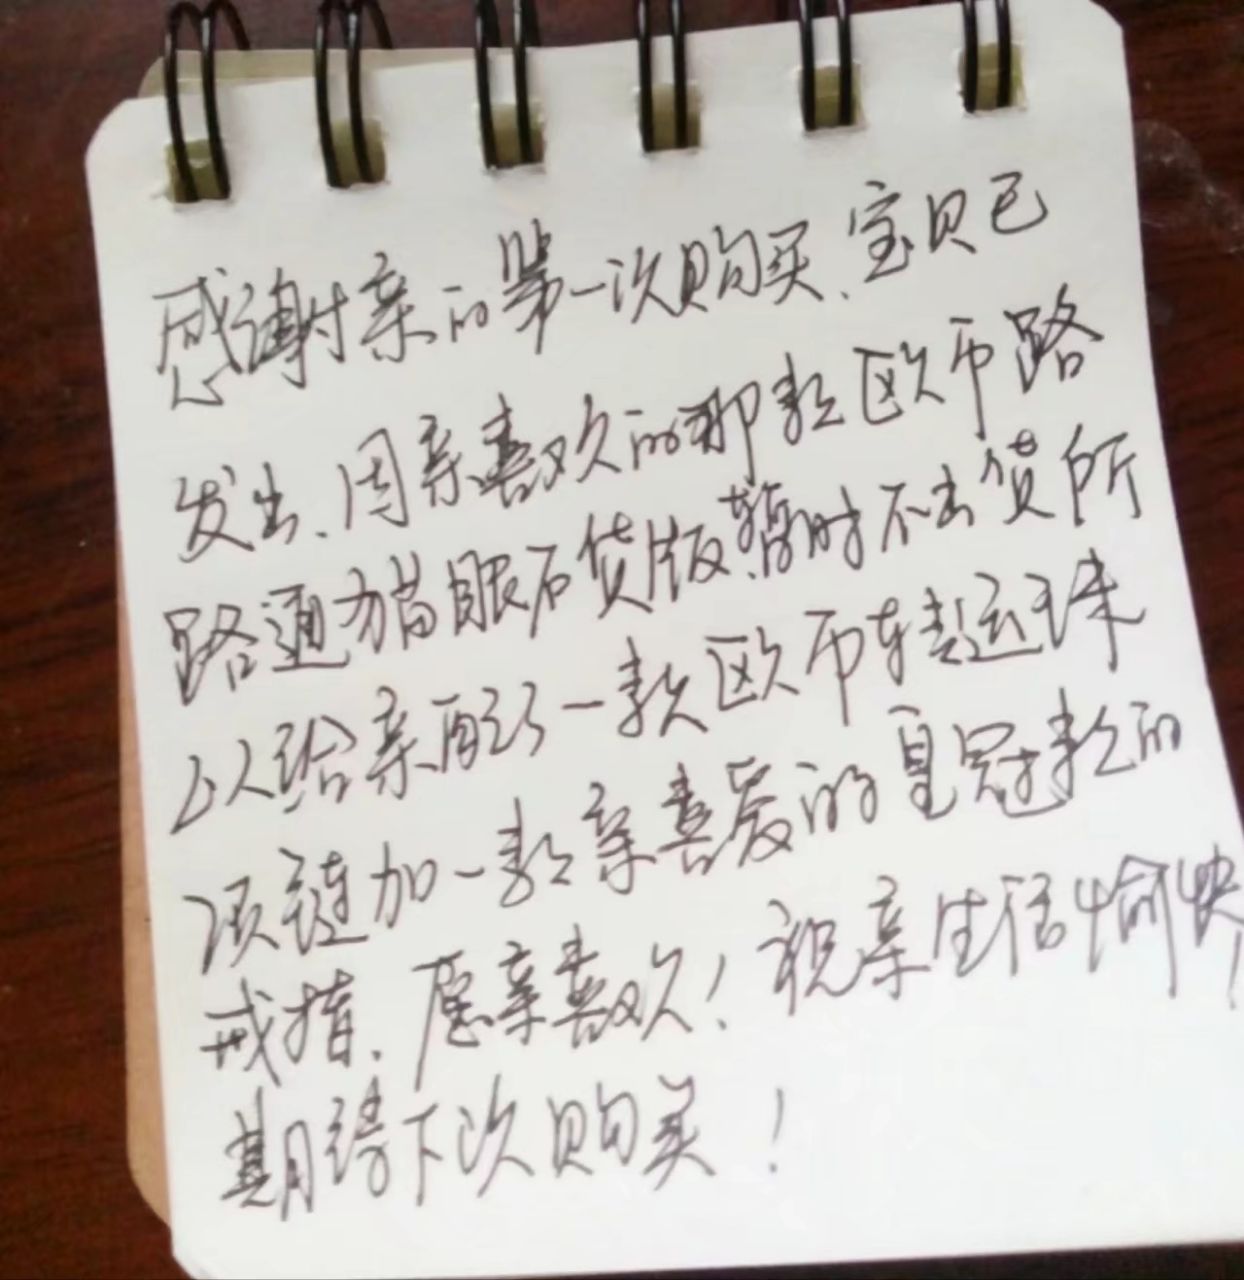 感谢亲的第一次购买、宝贝已
发出、因亲喜欢的那款欧币路
路通猫眼石货版、暂时不出货所
以给亲配了一款欧币转运珠
项链加一款亲喜爱的皇冠款的
戒指、愿亲喜欢！祝亲生活愉快！
期待下次购买！